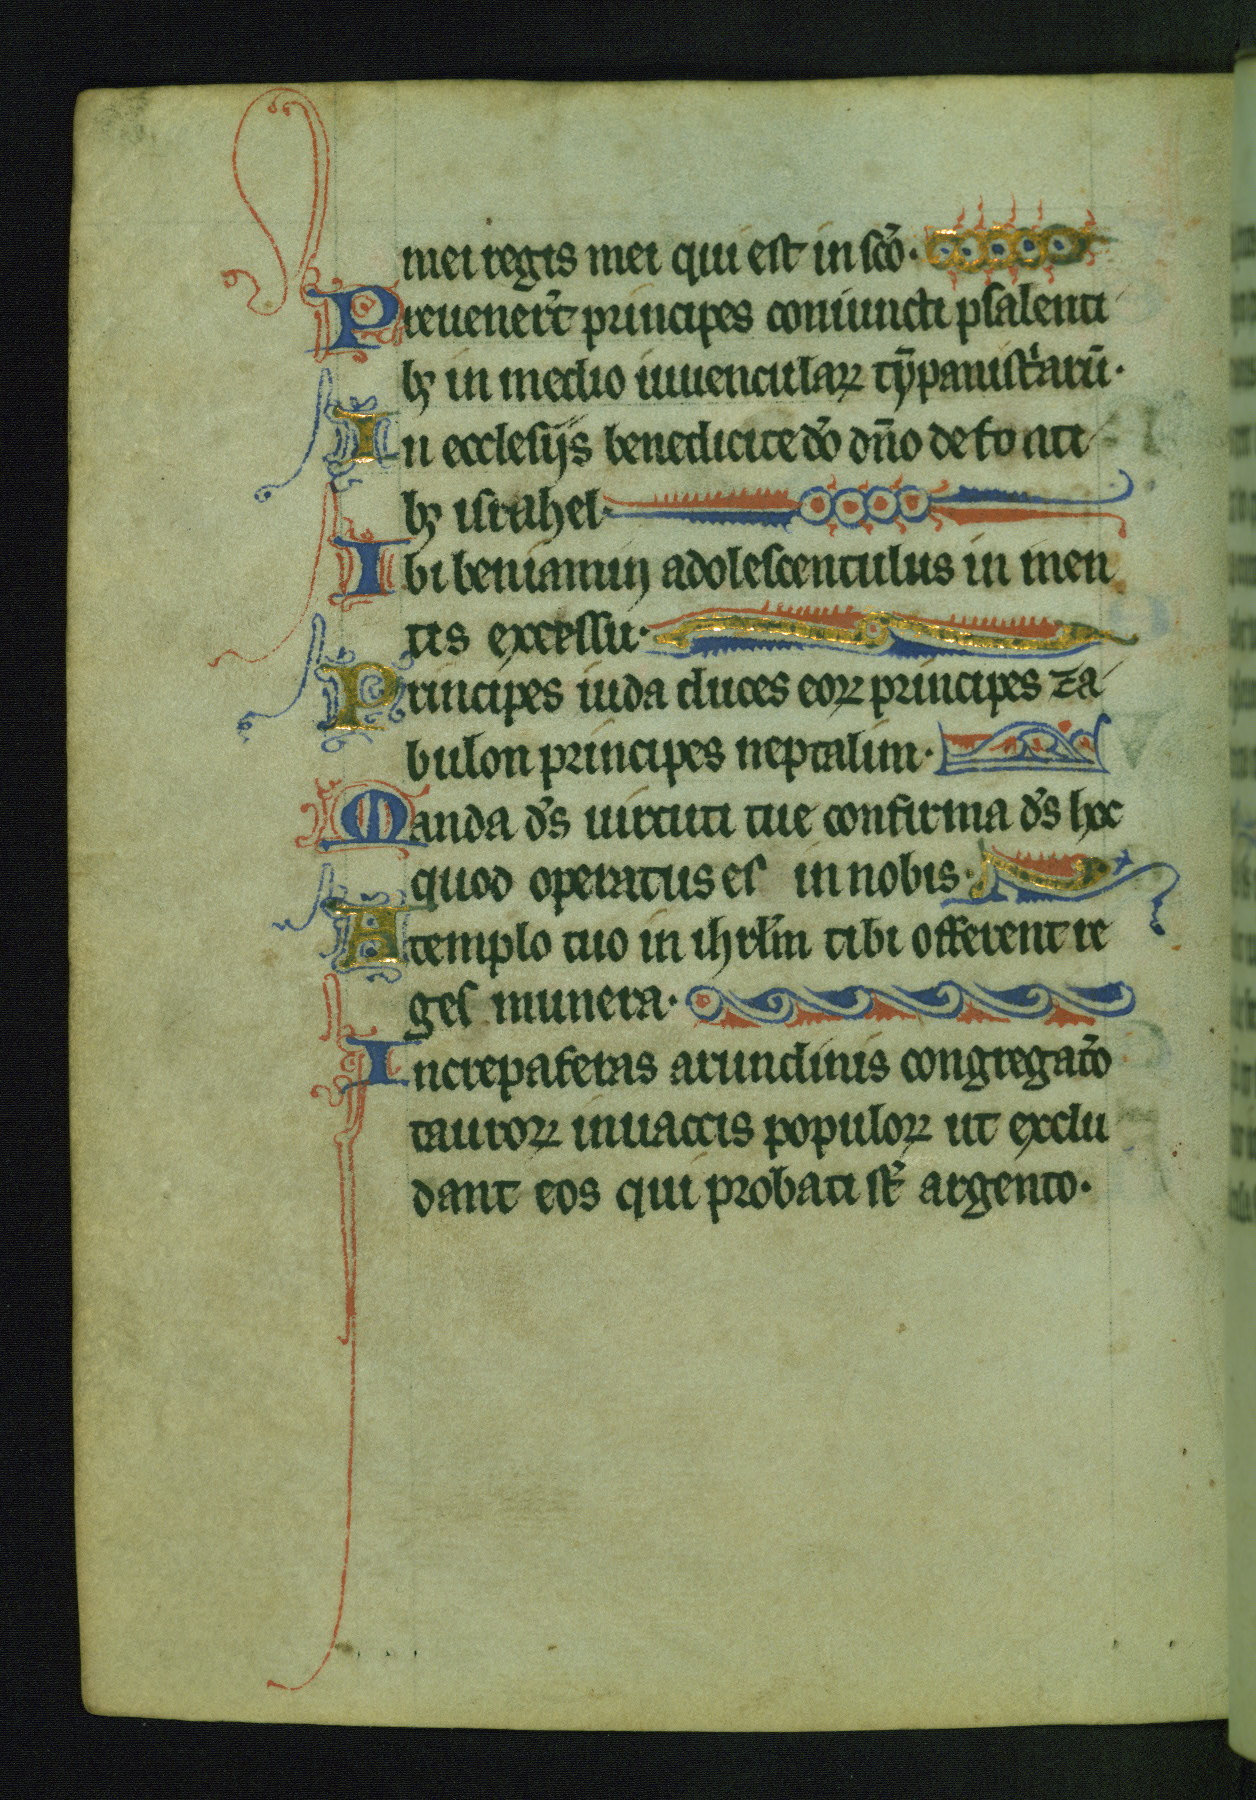 mei regis mei qui est in sc̄o·
Preuener̄t principes coniuncti psalenti
bꝫ in medio iuuenculaꝝ ty̅panist'arū·
In ecclesijs benedicite dō dn̄o de fo nti
bꝫ israhel·
Ibi beniamin adolescentulus in men
tis excessu·
Principes iuda duces eoꝝ principes za
bulon principes neptalim·
Manda d̄s uirtuti tue confirma d̄s hoc
quod operatus es in nobis·
A templo tuo in ihrl̄m tibi offerent re
ges munera·
Increpa feras arundinis congregat̄o
tauroꝝ in uaccis populoꝝ ut exclu
dant eos qui probati st̄ argento·